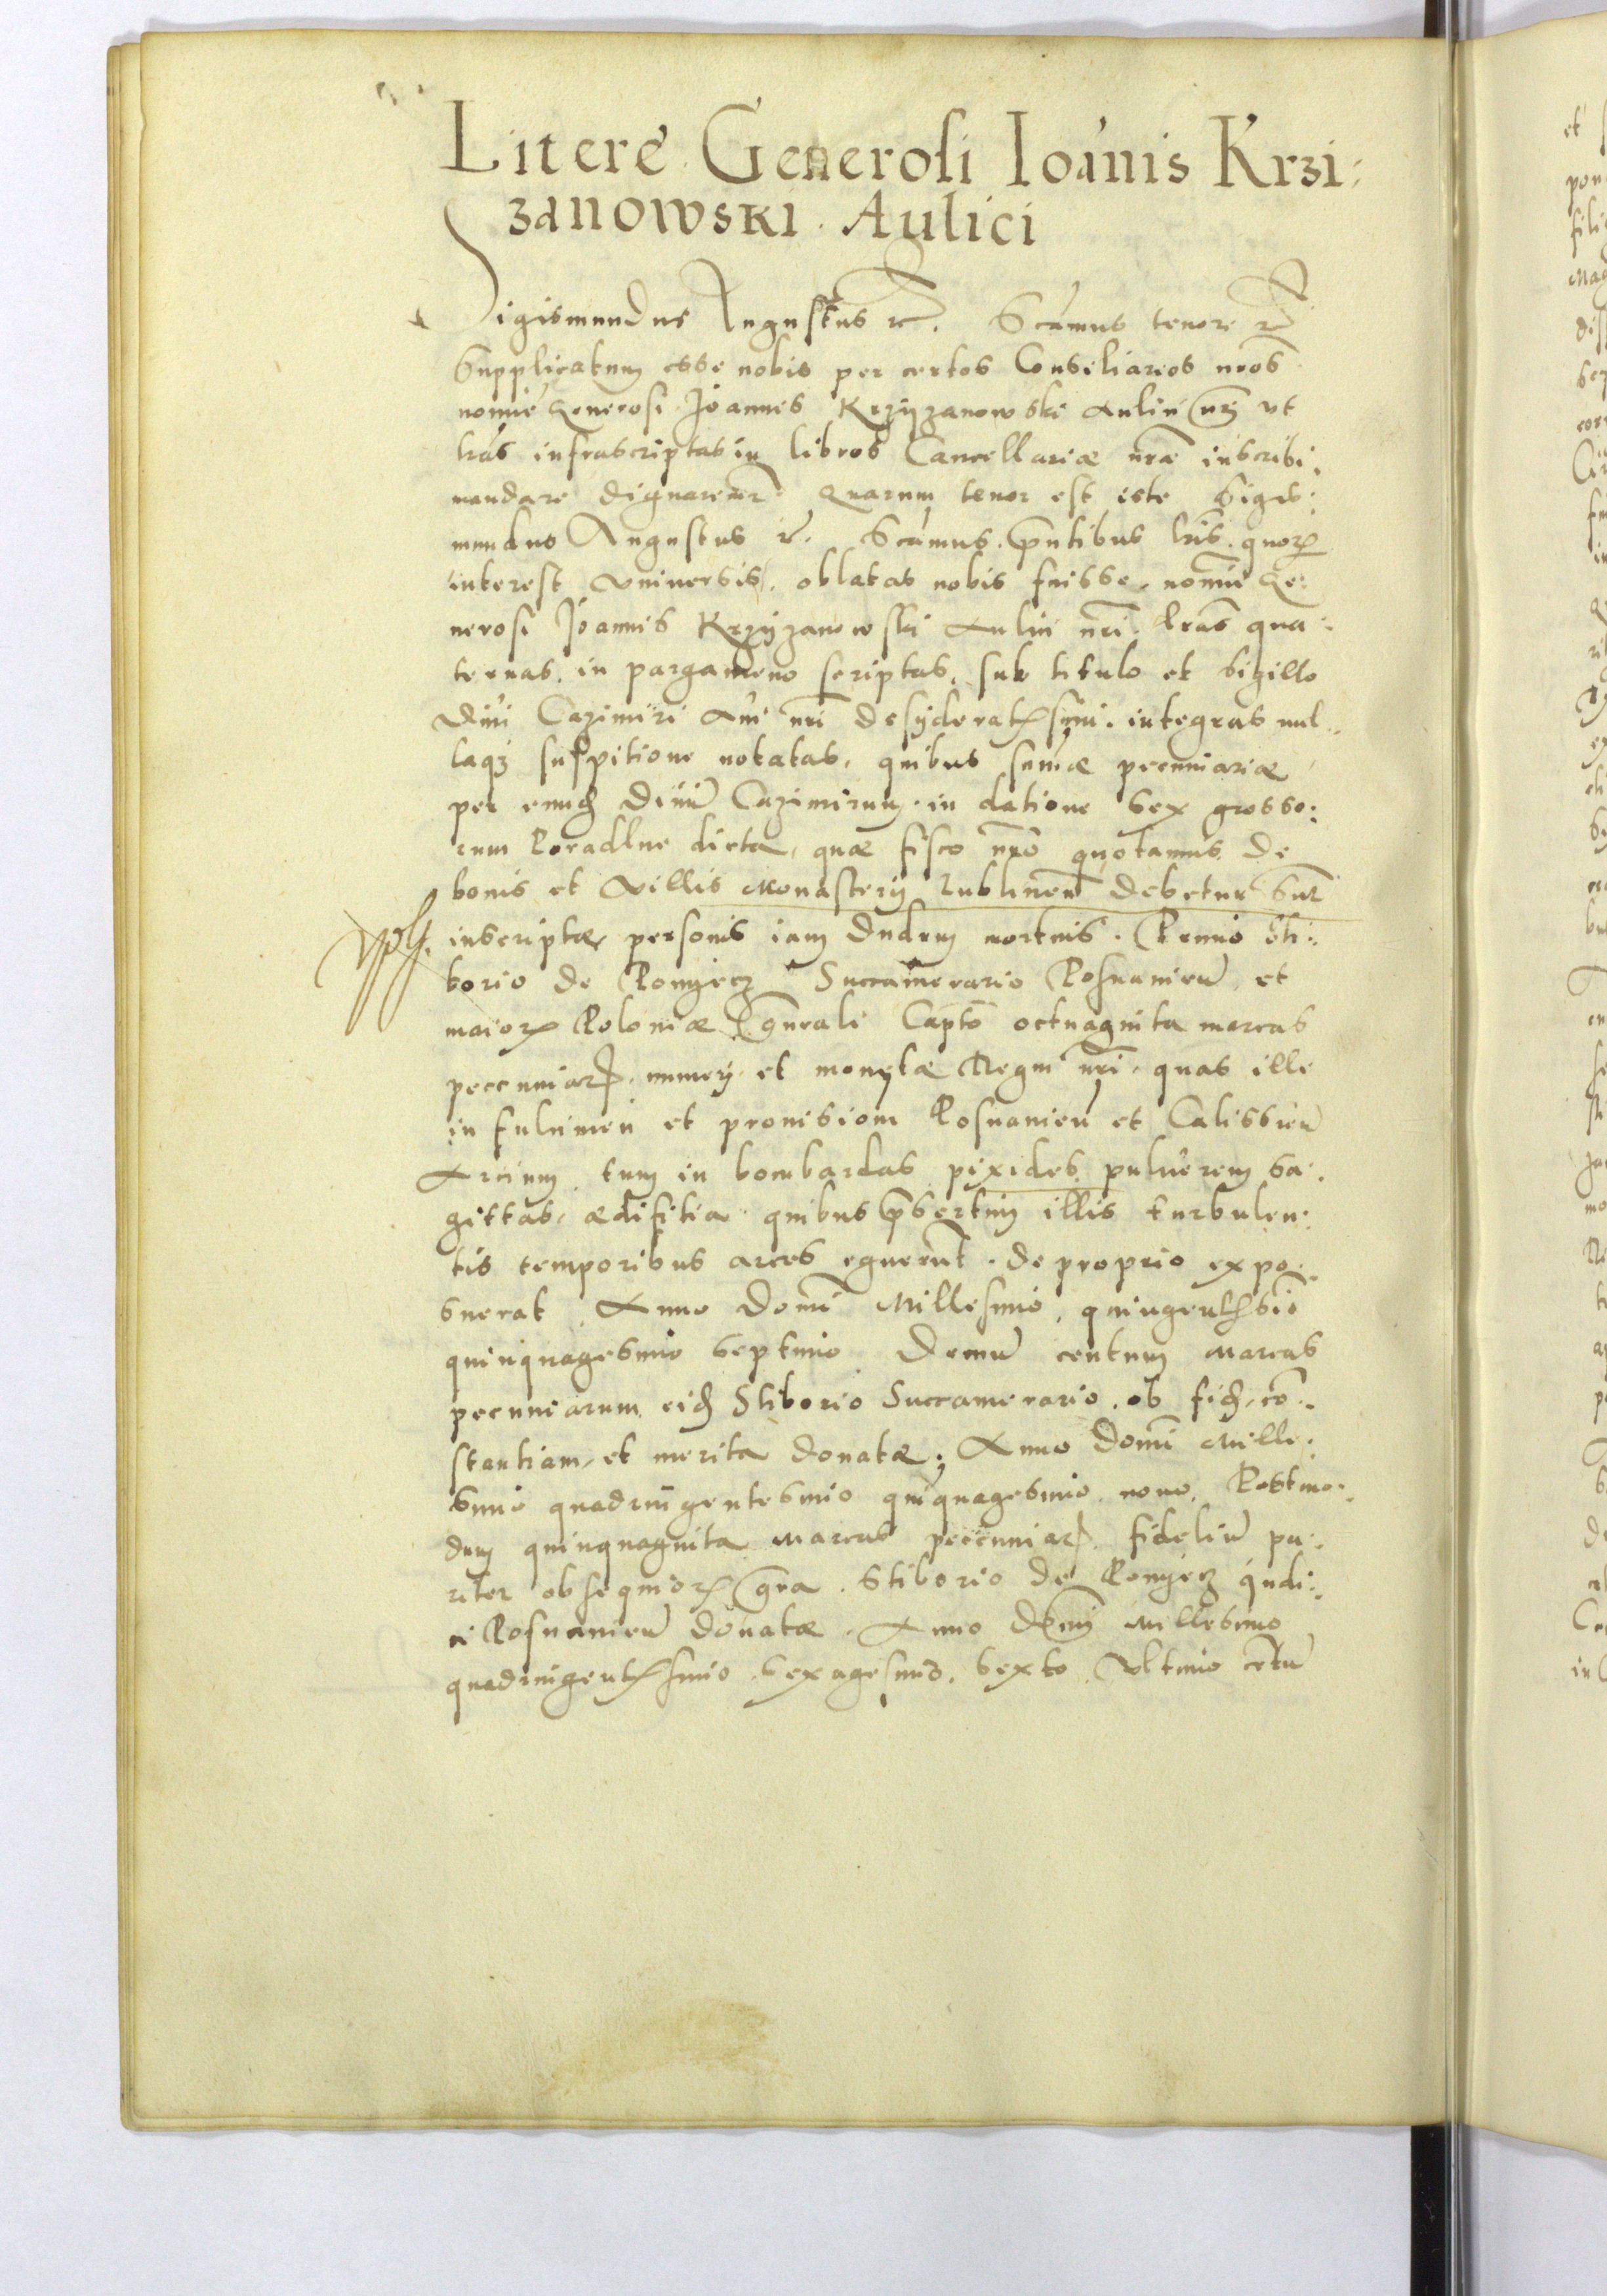 Litere Generosi Ioānis Krzi:
zanowski. Aulici
Sigismundus Augustus rc. Scimus tenore rc
Supplicatum esse nobis per certos Consiliarios nr̄os
nomīe Generosi Joannes Krzyzanowski Aulici nr̄i vt
lr̄as infrascriptas in libros Cancellariæ nr̄æ inscribi
mandare dignaremur. Quarum tenor est iste Sigis:
mundus Augustus rc. Scimus. pn̄tibus lr̄is. quorꝝ
interest vniuersis, oblatas nobis fuisse, nomīe Ge:
nerosi Joannis Krzyzanowski Aulici nr̄i. Lr̄as qua:
ternas, in pargameno scriptas, sub titulo et sigillo
Diui Cazimiri Aui nr̄i desyderatissimi. integras nul:
laqꝫ suspitione notatas, quibus sum̄æ pecuniariæ
per eund Diuū Cazimirum in datione sex grosso:
rum Poradlne dicta, quæ fisco nr̄o quotannis de
bonis et villis Monasterij Lublinen̄ debetur sunt
inscriptæ, personis iam dudum mortuis. Primo Sti:
borio de Ponyecz Succamerario Posnanien̄, et
maiorꝝ Poloniæ Gn̄rali Capt̄o octuaginta marcas
pecuniarꝝ, numeri et monetæ Regni nr̄i, quas ille
in fulcimen et prouisiom Posnanien̄ et Calissien̄
Arcium, tum in bombardas pixides puluerem sa:
gittas, ædifitia quibus p̄sertim illis turbulen:
tis temporibus arces eguerūt. de proprio expo:
suerat, Anno Domī Millesimo, quingentēsīo
quinquagesimo septimo Demū centum Marcas
pecuniarum, eid Stiborio Succamerario, ob fid, cō:
stantiam, et merita donatæ, Anno Domī Mille:
simo quadringentesimo quīquagesimo nono, Postmo:
dum quinquaginta Marcas pecuniarꝝ, fideliū pa:
riter obsequiorꝝ gr̄a. Stiborio de Ponyecz Iudi:
ci Posnanien̄ donatæ. Anno Domī Millesimo
quadringentesimo, sexagesimo, sexto, vltimo centū